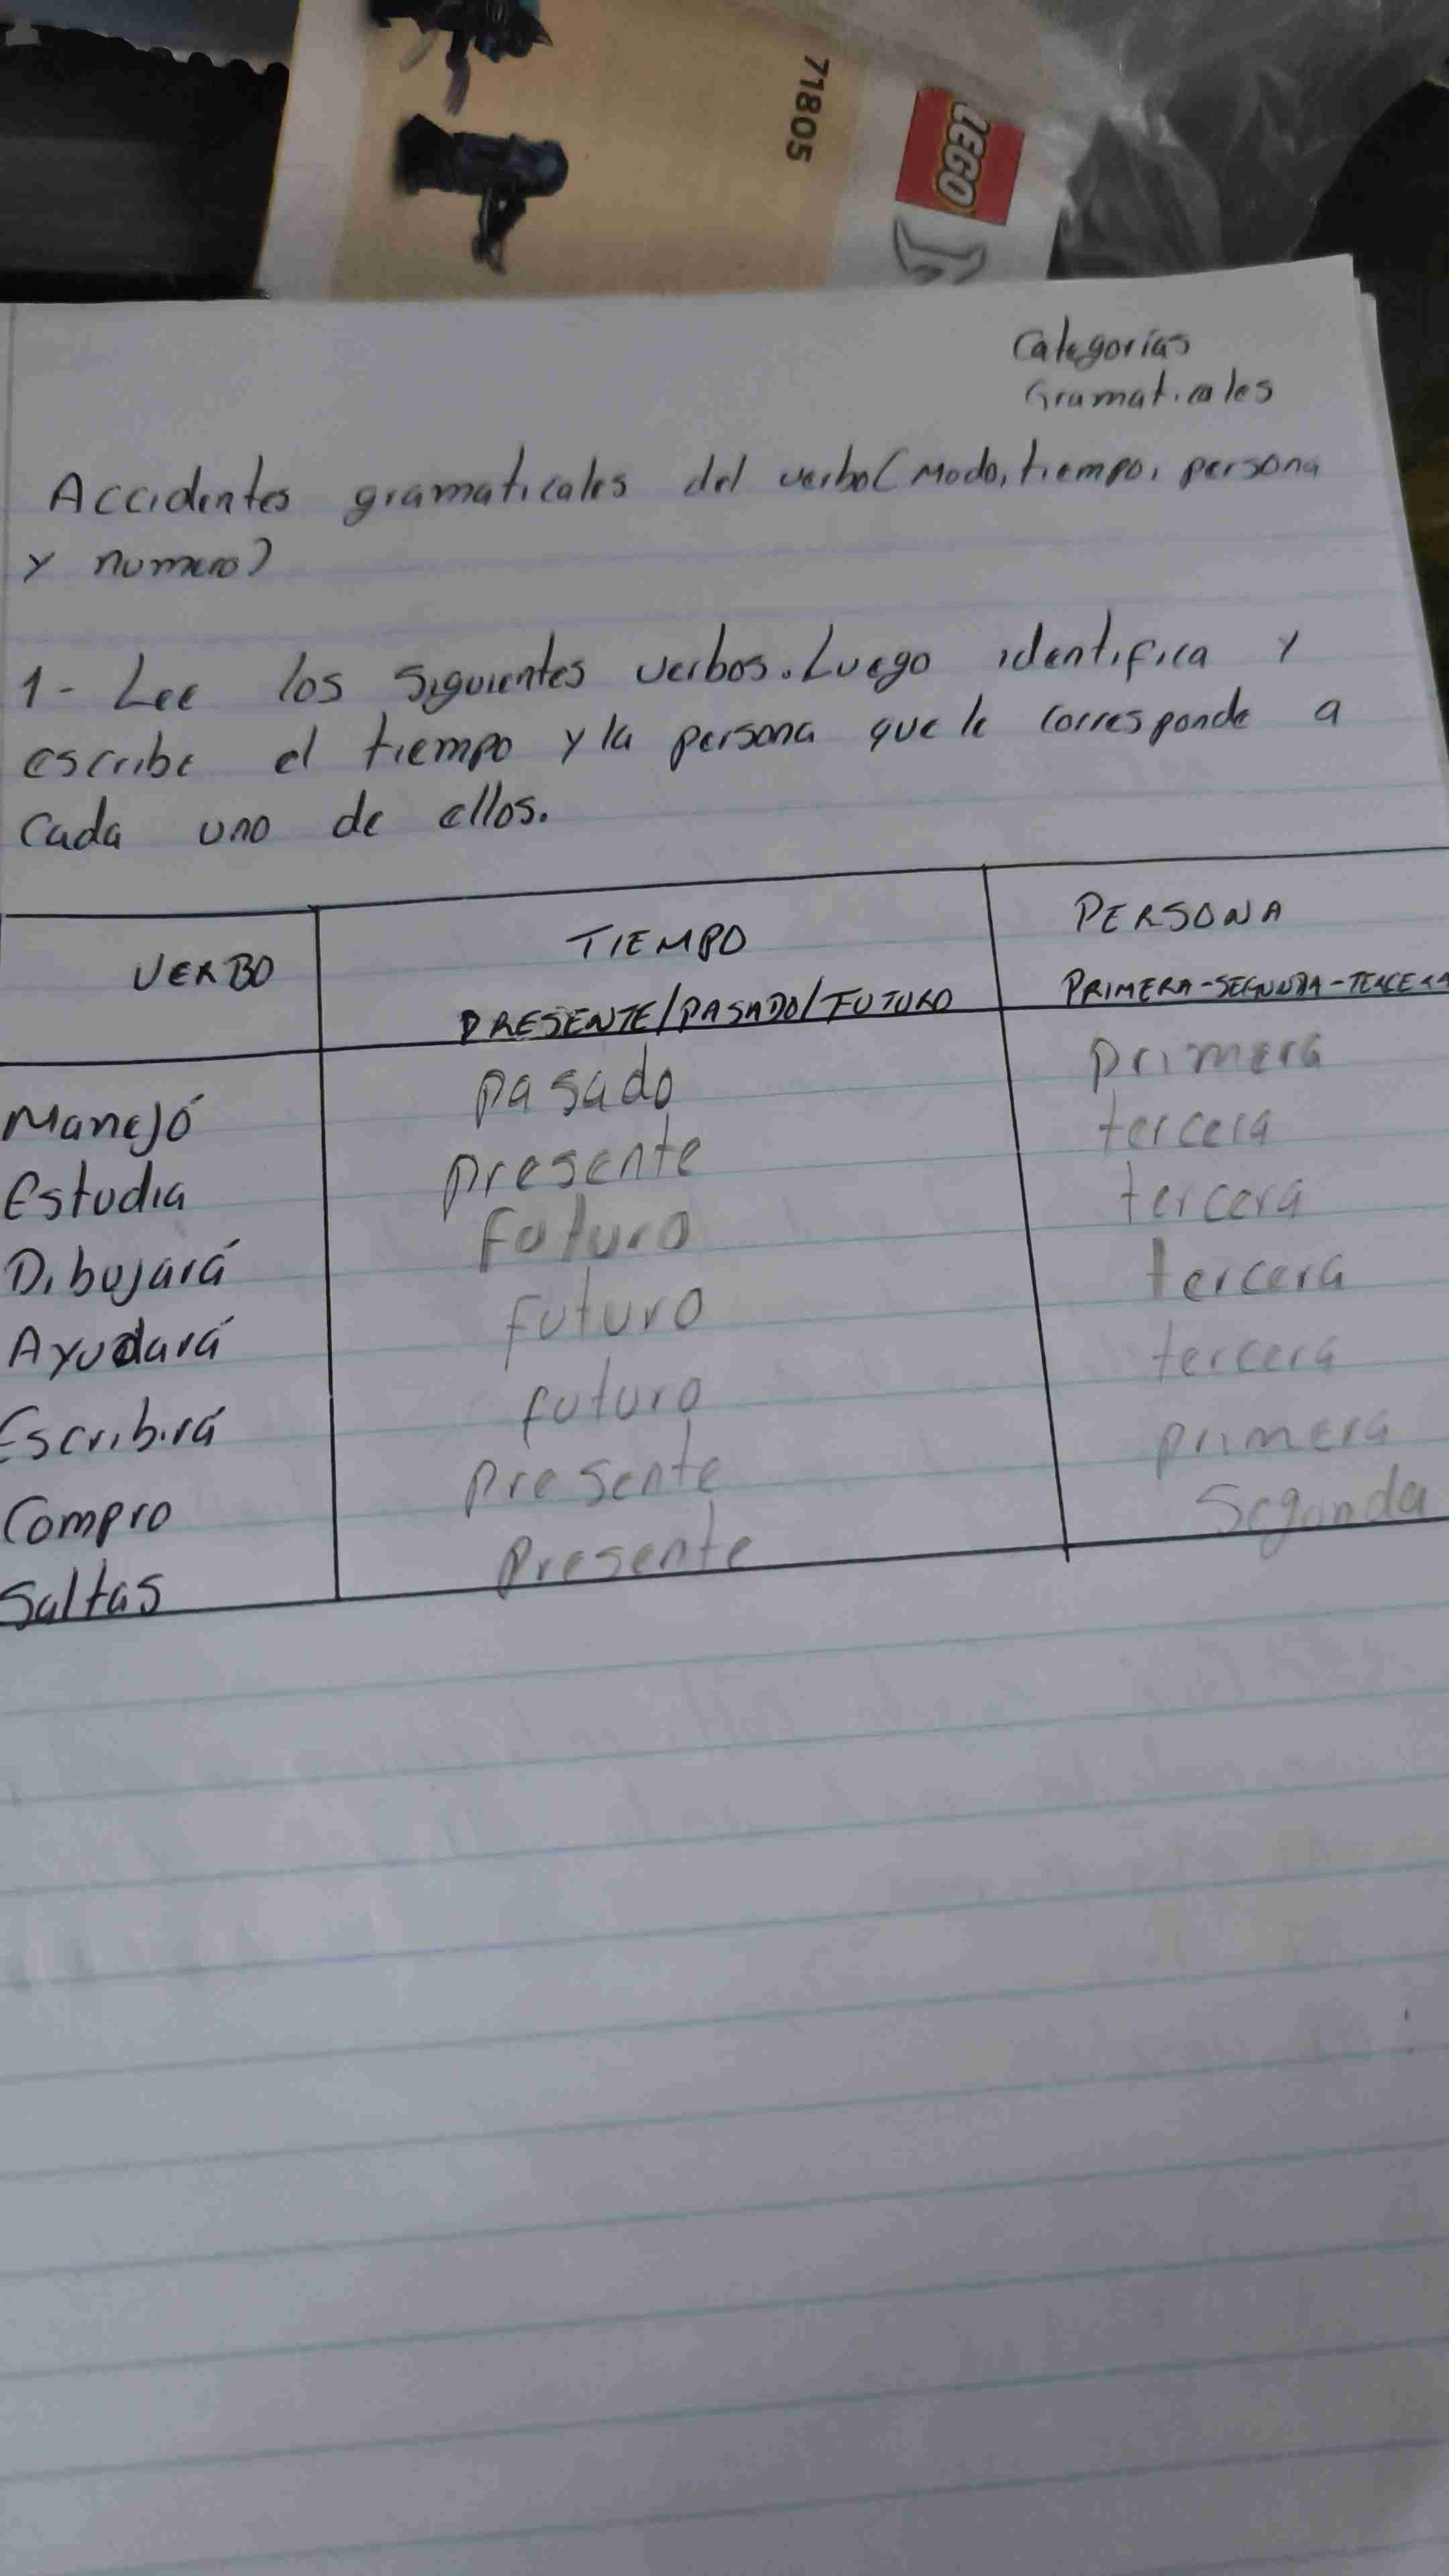 71805
LEGO
Categorías
Gramaticales
Accidentes gramaticales del verbo (Modo, tiempo, persona
y numero)
1- Lee los siguientes verbos. Luego identifica y
escribe el tiempo y la persona que le corresponde a
cada uno de ellos.
VERBO TIEMPO PERSONA
PRESENTE/PASADO/FUTURO PRIMERA-SEGUNDA-TERCERA
Manejó pasado primera
Estudia presente tercera
Dibujará Futuro tercera
Ayudará Futuro tercera
Escribirá futuro tercera
Compro presente primera
Saltas Presente Segunda